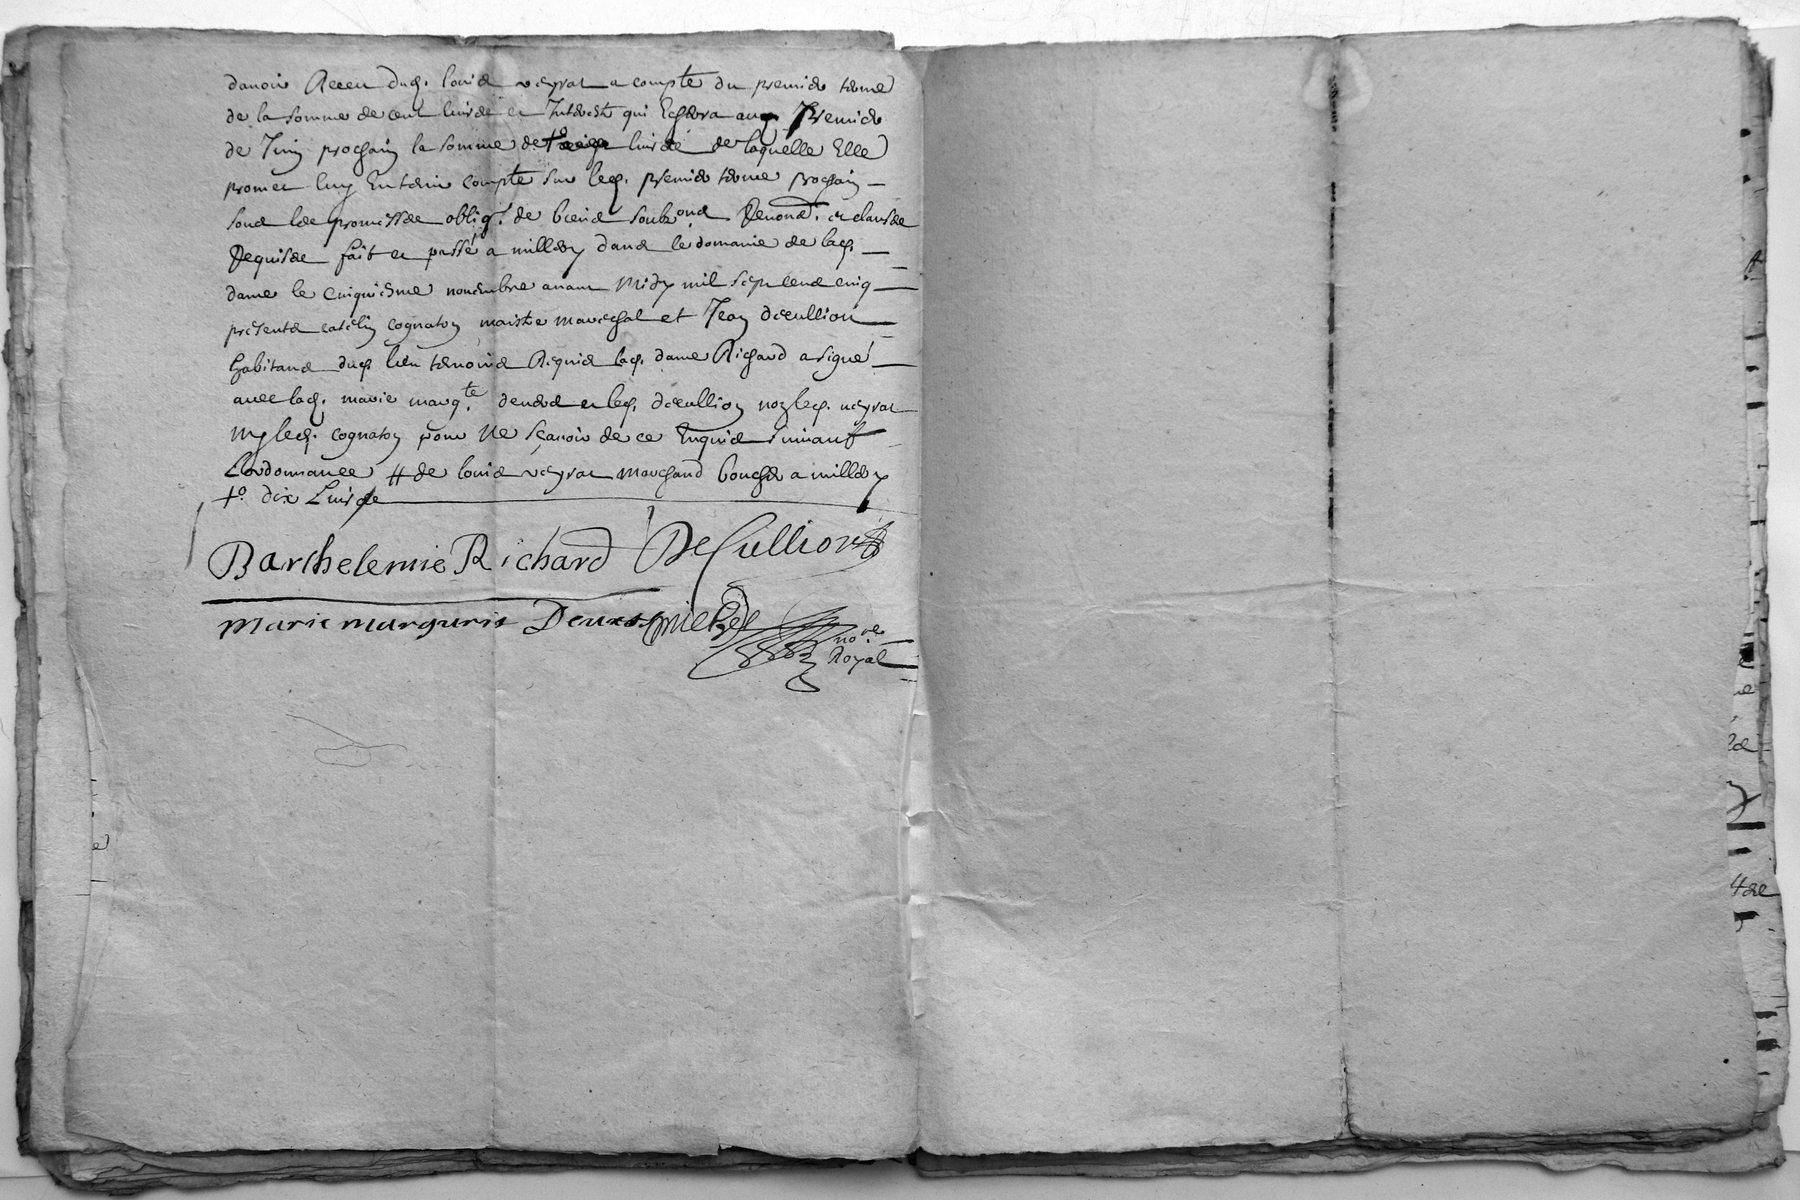 davoir Receu dud. louis veyrat a compte du premier terme
de la somme de cent livres et Interests qui Eschera au premier
de Juin prochain la somme de livres de laquelle Elle
promet luy En tenir compte sur led. premier terme prochain
sous les promesses oblig. de biens soub.ons Renon.ns et clauses
Requises fait et passé a millery dans le domaine de lad.
dame le cinquiesme novembre avant Midy mil sept cens cinq
presents catelin cognaton maistre mareschal et Jean decullion
habitans dud. lieu temoins Requis lad. dame Richard a signé
avec lad. marie marg.te et led. decullion non led. veyrat
ny led. cognaton pour Ne sçavoir de ce Enquis suivant
Lordonnance # de louis veyrat marchand boucher a millery
+o dix Livres
Barthelemie Richard DeCullion
marie marguerite
no.re
Royal